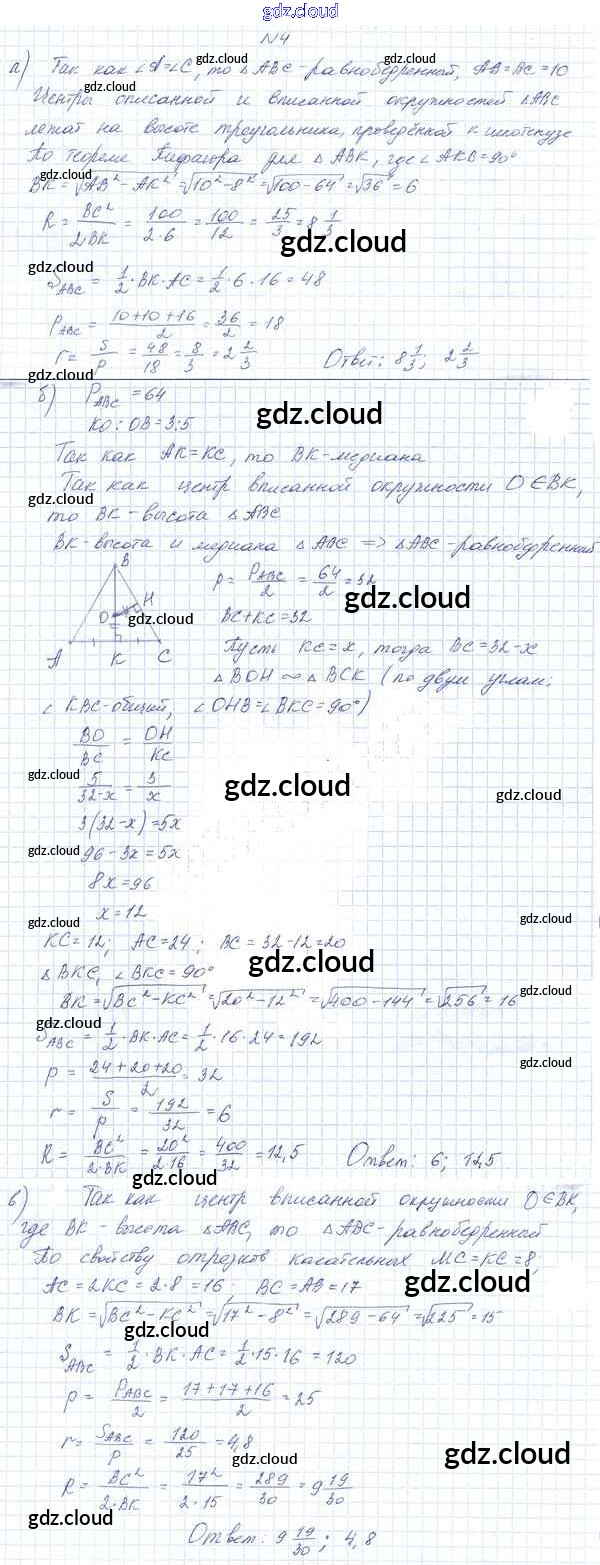 gdz.cloud
N4
а) Так как ∠A=∠C, то △ABC-равнобедренный, AB=BC=10
Центры описанной и вписанной окружностей △ABC
лежат на высоте треугольника, проведённой к гипотенузе
По теореме Пифагора для △ABK, где ∠AKB=90°
BK=√(AB²-AK²)=√(10²-8²)=√(100-64)=√36=6
R = BC²/(2BK) = 100/(2·6) = 100/12 = 25/3 = 8 1/3
gdz.cloud
S_ABC = 1/2·BK·AC = 1/2·6·16=48
P_ABC = (10+10+16)/2 = 36/2 = 18
r = S/p = 48/18 = 8/3 = 2 2/3 Ответ: 8 1/3; 2 2/3
gdz.cloud
б) P_ABC = 64
KO:OB=3:5
gdz.cloud
Так как AK=KC, то BK-медиана
Так как центр вписанной окружности O∈BK,
то BK-высота △ABC
BK-высота и медиана △ABC => △ABC-равнобедренный
B
H
O
A K C
p = P_ABC/2 = 64/2 = 32
gdz.cloud
BC+KC=32
Пусть KC=x, тогда BC=32-x
△BOH ∾ △BCK (по двум углам:
∠KBC-общий, ∠OHB=∠BKC=90°)
BO/BC = OH/KC
gdz.cloud
5/(32-x) = 3/x
3(32-x)=5x
96-3x=5x
8x=96
x=12
KC=12; AC=24; BC=32-12=20
△BKC, ∠BKC=90°
gdz.cloud
BK=√(BC²-KC²)=√(20²-12²)=√(400-144)=√256=16
S_ABC = 1/2·BK·AC = 1/2·16·24=192
p = (24+20+20)/2 = 32
r = S/p = 192/32 = 6
R = BC²/(2·BK) = 20²/(2·16) = 400/32 = 12,5 Ответ: 6; 12,5
gdz.cloud
в) Так как центр вписанной окружности O∈BK,
где BK-высота △ABC, то △ABC-равнобедренный
По свойству отрезков касательных MC=KC=8;
AC=2KC=2·8=16; BC=AB=17
gdz.cloud
BK=√(BC²-KC²)=√(17²-8²)=√(289-64)=√225=15
gdz.cloud
S_ABC = 1/2·BK·AC = 1/2·15·16=120
p = P_ABC/2 = (17+17+16)/2 = 25
r = S_ABC/p = 120/25 = 4,8
gdz.cloud
R = BC²/(2·BK) = 17²/(2·15) = 289/30 = 9 19/30
gdz.cloud
Ответ: 9 19/30; 4,8